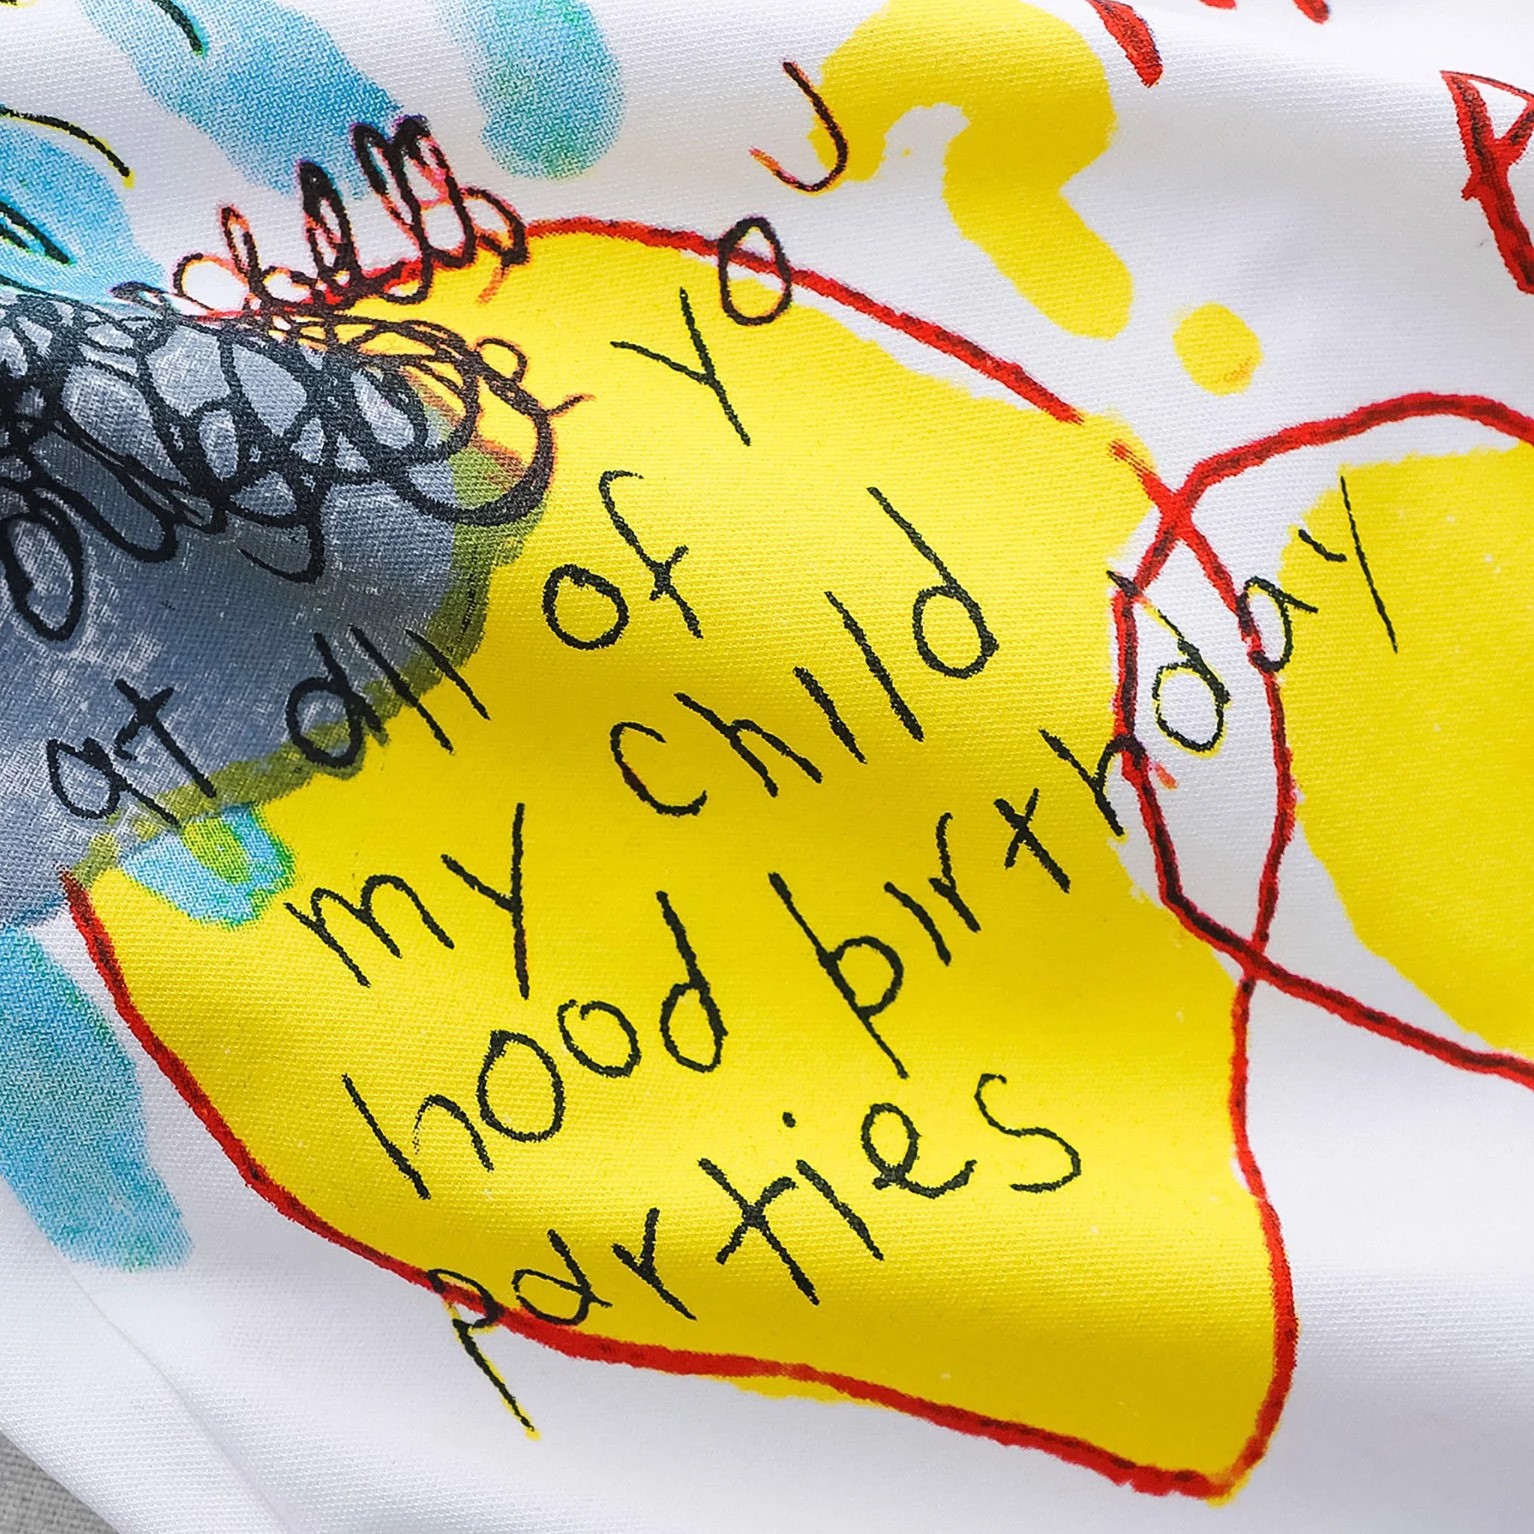 you
at all of
my child
hood birthday
parties